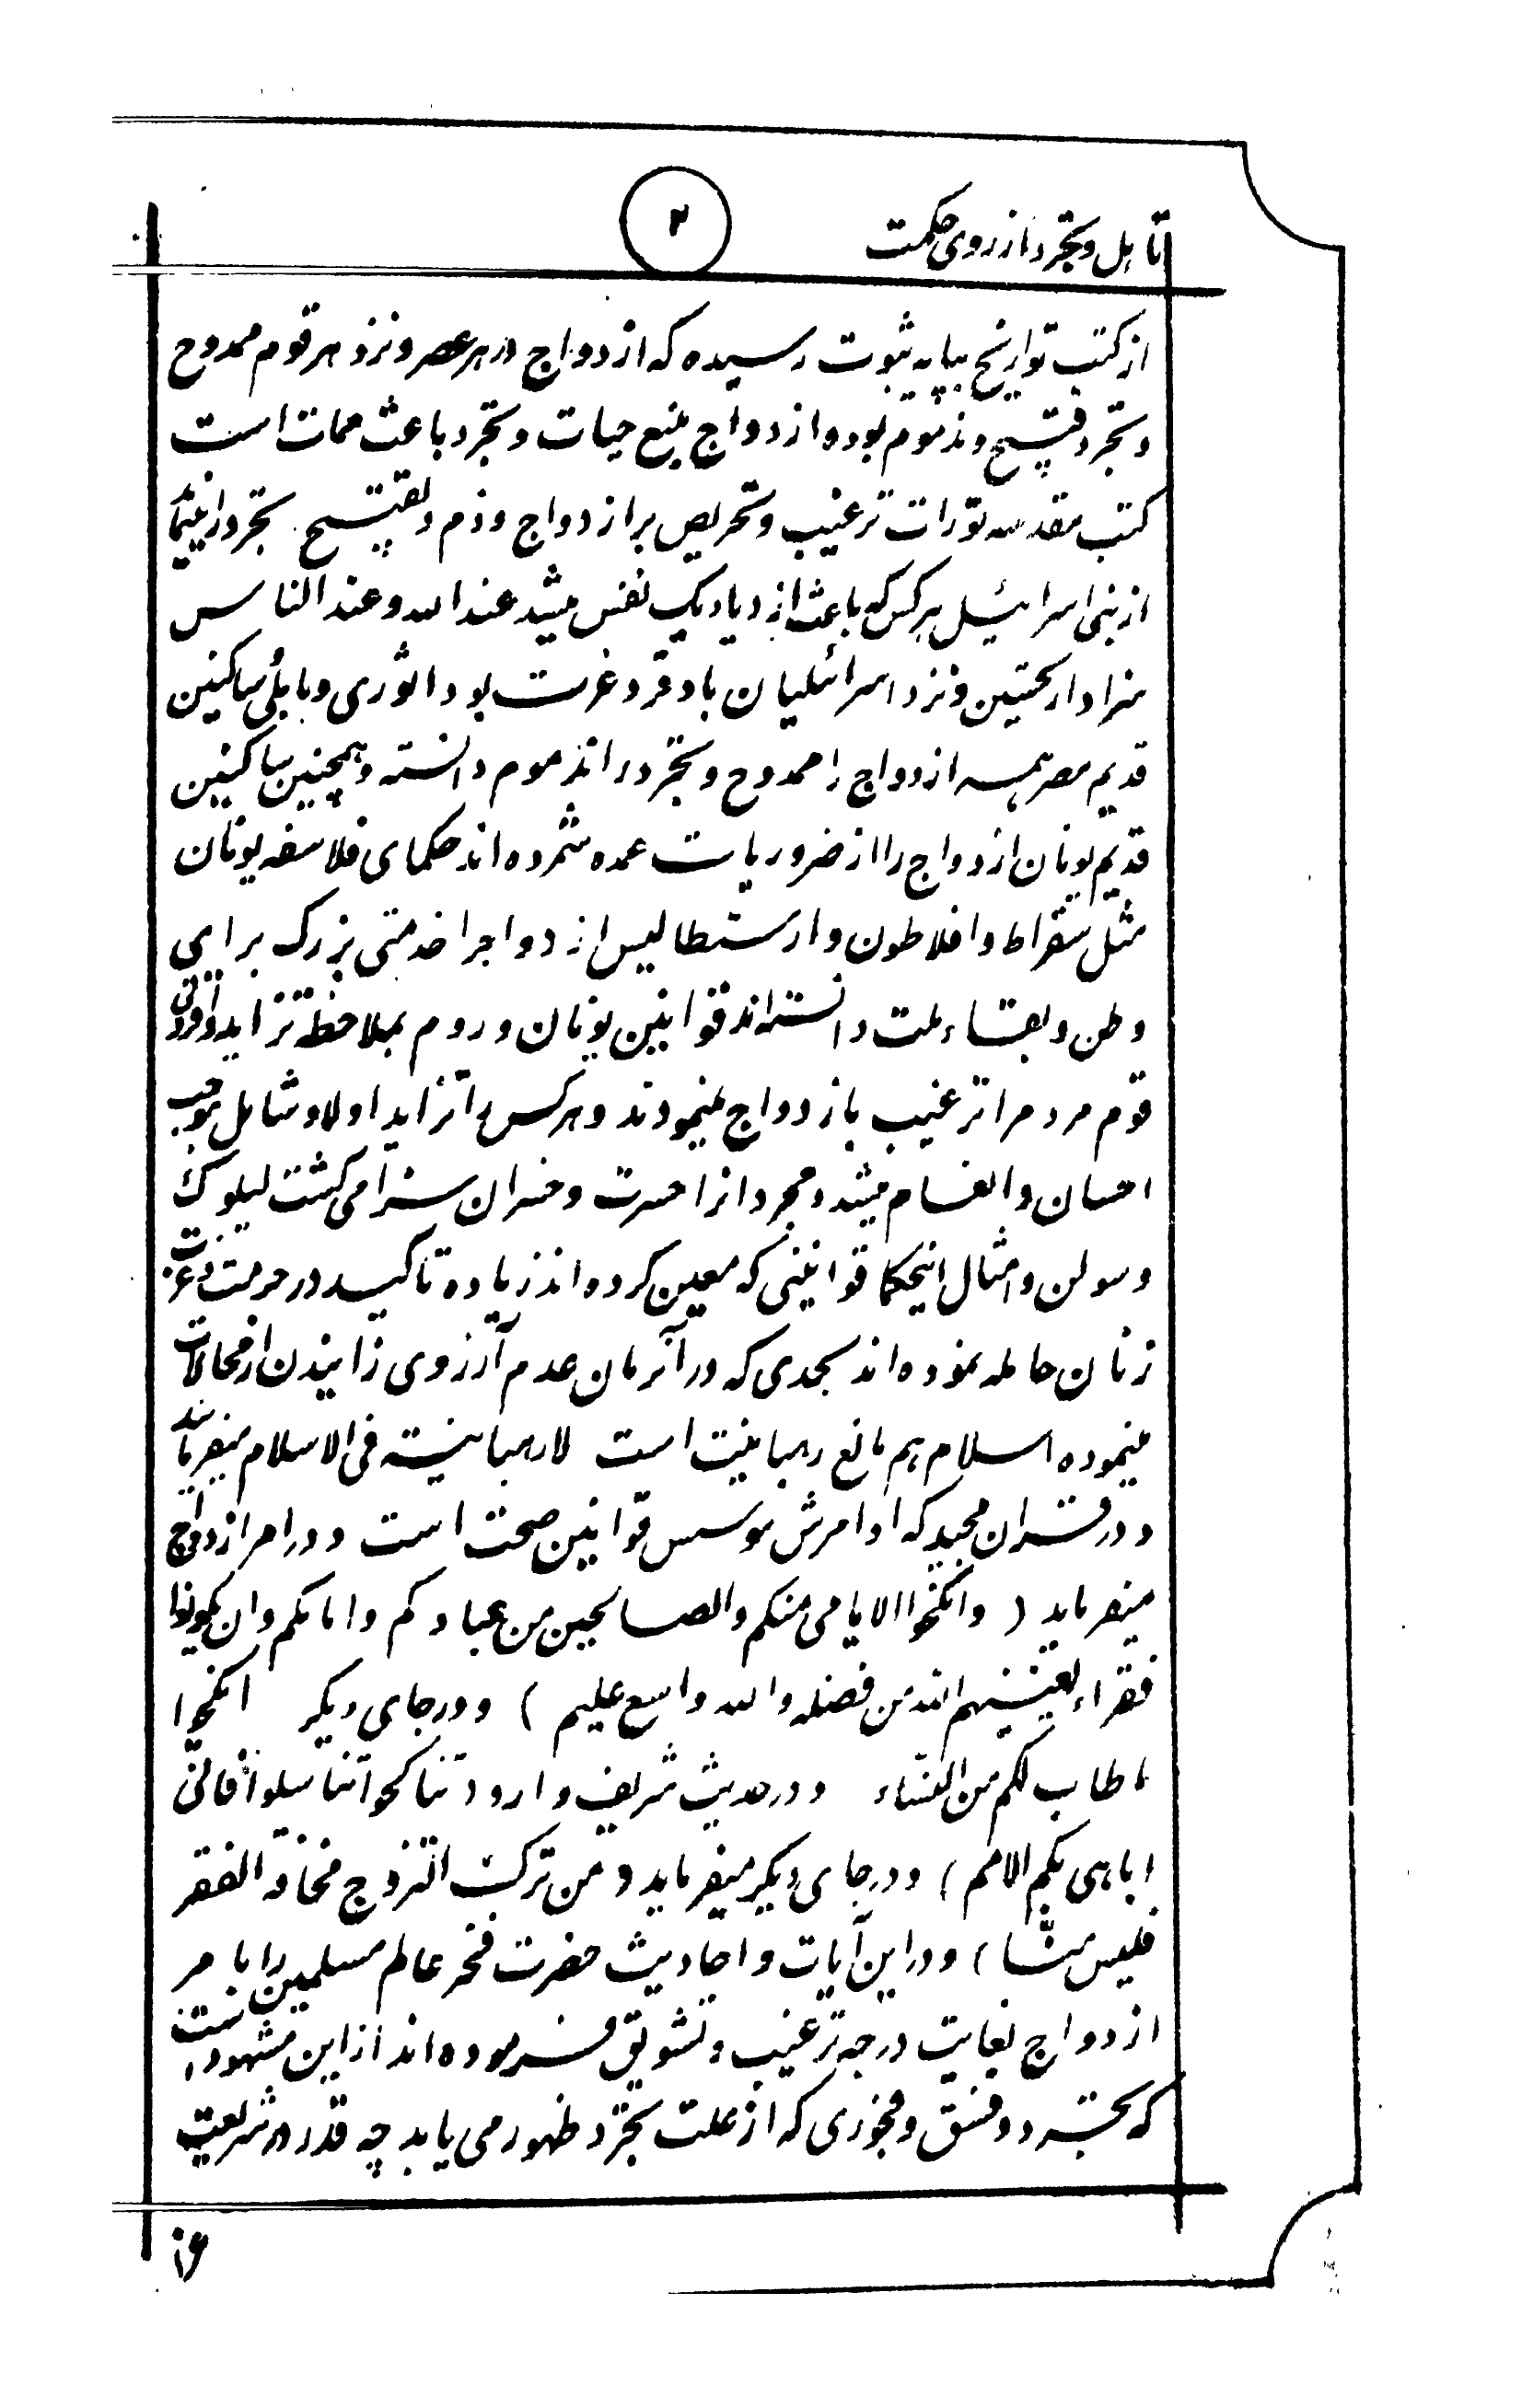 تأهل و تجرد از روی حکمت
۲
از کتب تواریخ بپایه ثبوت رسیده که ازدواج در هر عصر و نزد هر قوم ممدوح
و تجرد قبیح و مذموم بوده و ازدواج منبع حیات و تجرد باعث ممات است
کتب مقدسه تورات ترغیب و تحریص بر ازدواج و ذم و تقبیح تجرد را مینماید
از بنی اسرائیل هر کس که باعث ازدیاد یک نفس میشد عند الله و عند الناس
سزاوار تحسین و نزد اسرائلیان با وقر و عزت بود اثوری و بابلی ساکنین
قدیم مصر همه ازدواج را ممدوح و تجرد را مذموم دانسته و همچنین ساکنین
قدیم یونان ازدواج را از ضروریات عمده شمرده اند حکمای فلاسفه یونان
مثل سقراط و افلاطون و ارسطالیس ازدواجرا خدمتی بزرک برای
وطن و بقاء ملت دانسته اند قوانین یونان و روم بملاحظه تزاید و افزونی
قوم مردم را ترغیب بازدواج مینمودند و هر کس را تزاید اولاد شامل موجب
احسان و انعام میشد و مجردانرا حسرت و خسران سزا می کشت لیلوک
و سولن و امثال اینحکما قوانینی که معین کرده اند زیاده تاکید در حرمت و عزت
زنان حامله نموده اند بحدی که در آنزمان عدم آرزوی زائیدن از محالات
مینموده اسلام هم مانع رهبانیت است لا رهبانیة فی الاسلام میفرماید
و در قران مجید که اوامرش موسس قوانین صحت است و در امر ازدواج
میفرماید ( وانکحوا الایامی منکم والصالحین من عبادکم وامائکم وان یکونوا
فقراء یغنیهم الله من فضله والله واسع علیم ) و در جای دیکر انکحوا
ما طاب لکم من النساء و در حدیث شریف وارد تناکحوا تناسلوا فانی
اباهی بکم الامم ) و در جای دیکر میفرماید و من ترک التزوج مخافة الفقر
فلیس منّا ) و در این آیات و احادیث حضرت فخر عالم مسلمین را بامر
ازدواج بغایت درجه ترغیب و تشویق فرموده اند از این مشهود است
که تجرد و فسق و فجوری که از علت تجرد ظهور می یابد چه قدر در شریعت